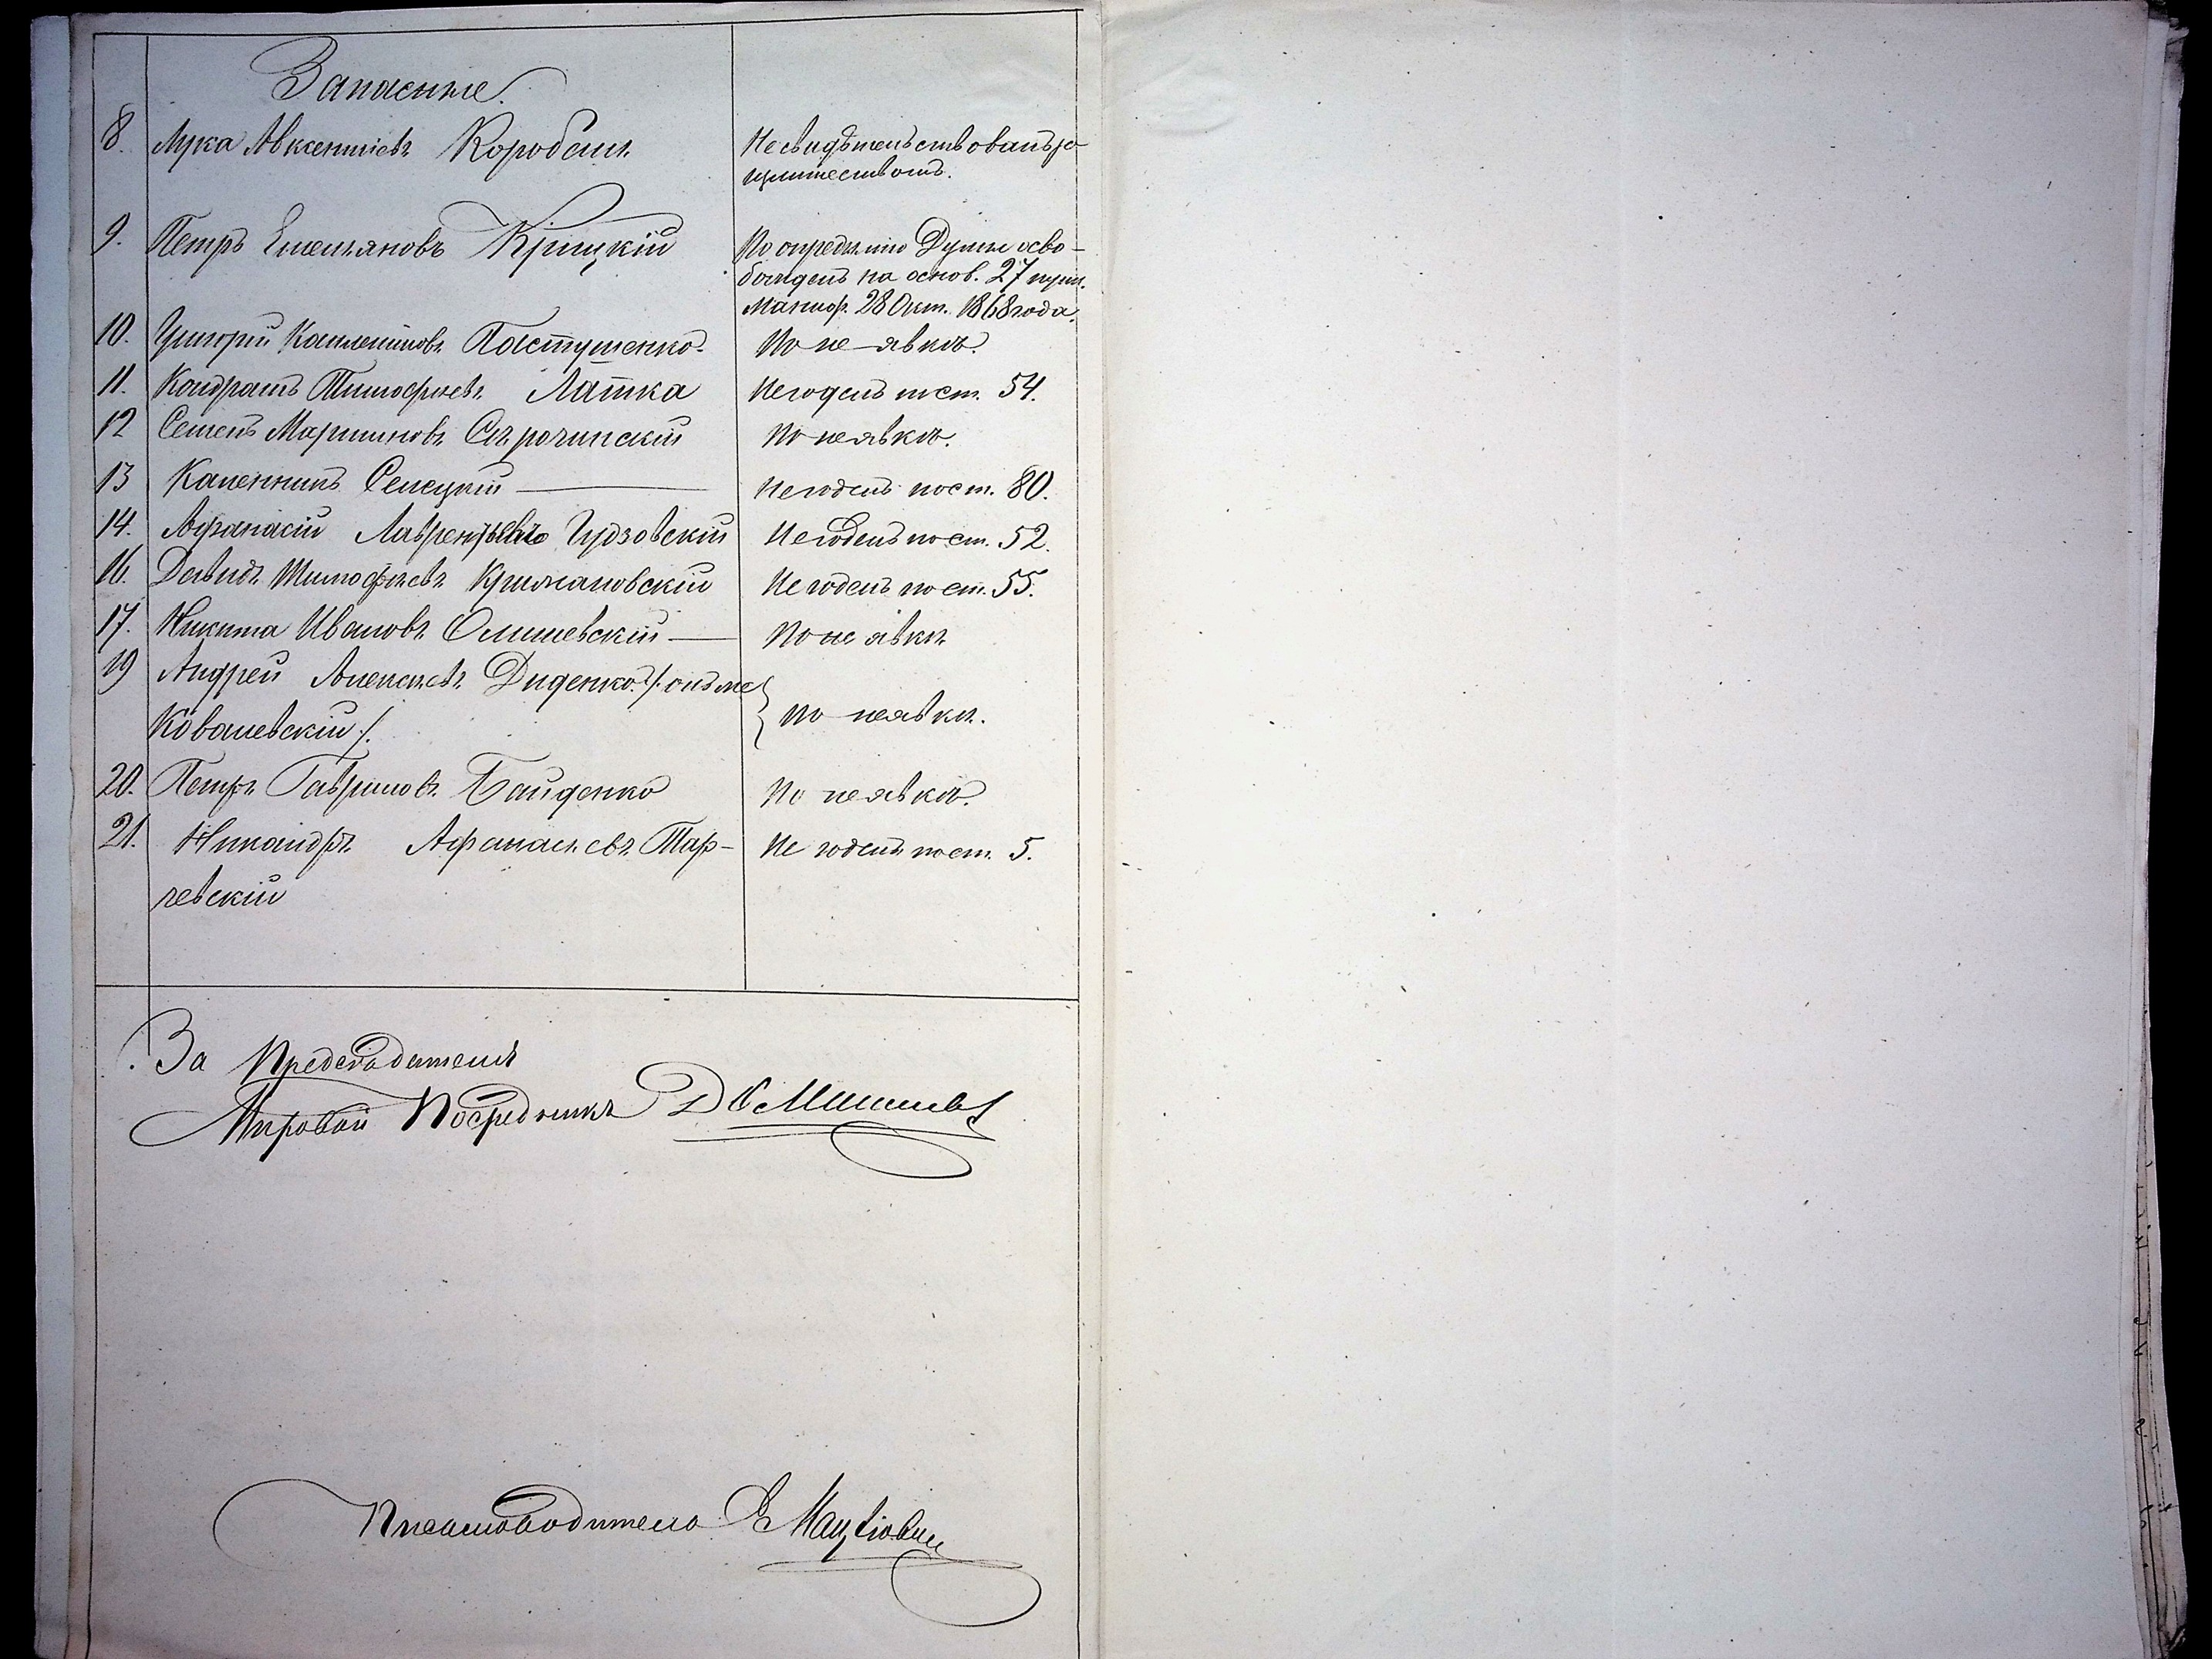 Запасные.
8. Лука Авксентіевъ Коробанъ Несвидѣтельствованъ за
излишествомъ.
9. Петръ Емельяновъ Крицкій По опредѣлнію Думы осво-
божденъ на основ. 27 пунк.
Маниф. 28 Окт. 1868 года.
10. Григорій Каплентіновъ Пастушенко По не-явкѣ.
11. Кондратъ Тимофѣевъ Латка Негоденъ по ст. 54.
12 Семенъ Мартиновъ Сѣрочинскій По неявкѣ.
13 Каленникъ Селецкій Негоденъ по ст. 80.
14. Афанасій Лаврентьевъ Гудзовскій Негоденъ по ст. 52.
16. Давидъ Тимофѣевъ Крижановскій Негоденъ по ст. 55.
17. Никита Ивановъ Олишевскій По не явкѣ
19 Андрей Алексѣевъ Диденко /: онъ же
Ковалевскій :/. по неявкѣ.
20. Петръ Гавриловъ Байденко По неявкѣ.
21. Никандръ Афанасьевъ Тар-
чевскій Не годенъ по ст. 5.
За Предсѣдателя
Мировой Посредникъ
Письмоводитель